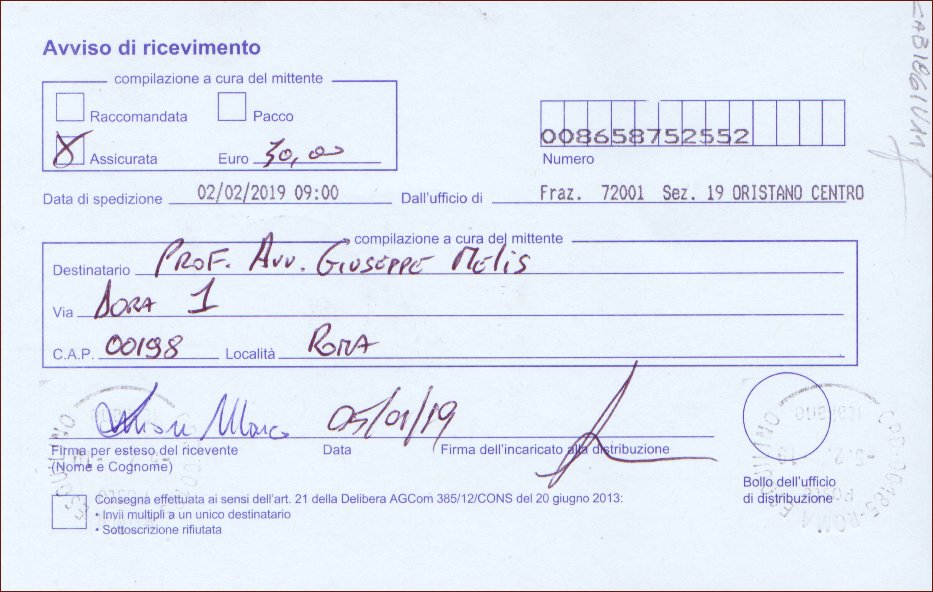 Avviso di ricevimento
compilazione a cura del mittente
Raccomandata Pacco
Assicurata Euro 30,00
008658752552
Numero
Data di spedizione 02/02/2019 09:00 Dall'ufficio di Fraz. 72001 Sez. 19 ORISTANO CENTRO
compilazione a cura del mittente
Destinatario PROF. AVV. GIUSEPPE MELIS
Via DORA 1
C.A.P. 00198 Località ROMA
Marco 05/01/19
Firma per esteso del ricevente Data Firma dell'incaricato alla distribuzione
(Nome e Cognome)
Bollo dell'ufficio
di distribuzione
Consegna effettuata ai sensi dell'art. 21 della Delibera AGCom 385/12/CONS del 20 giugno 2013:
• Invii multipli a un unico destinatario
• Sottoscrizione rifiutata